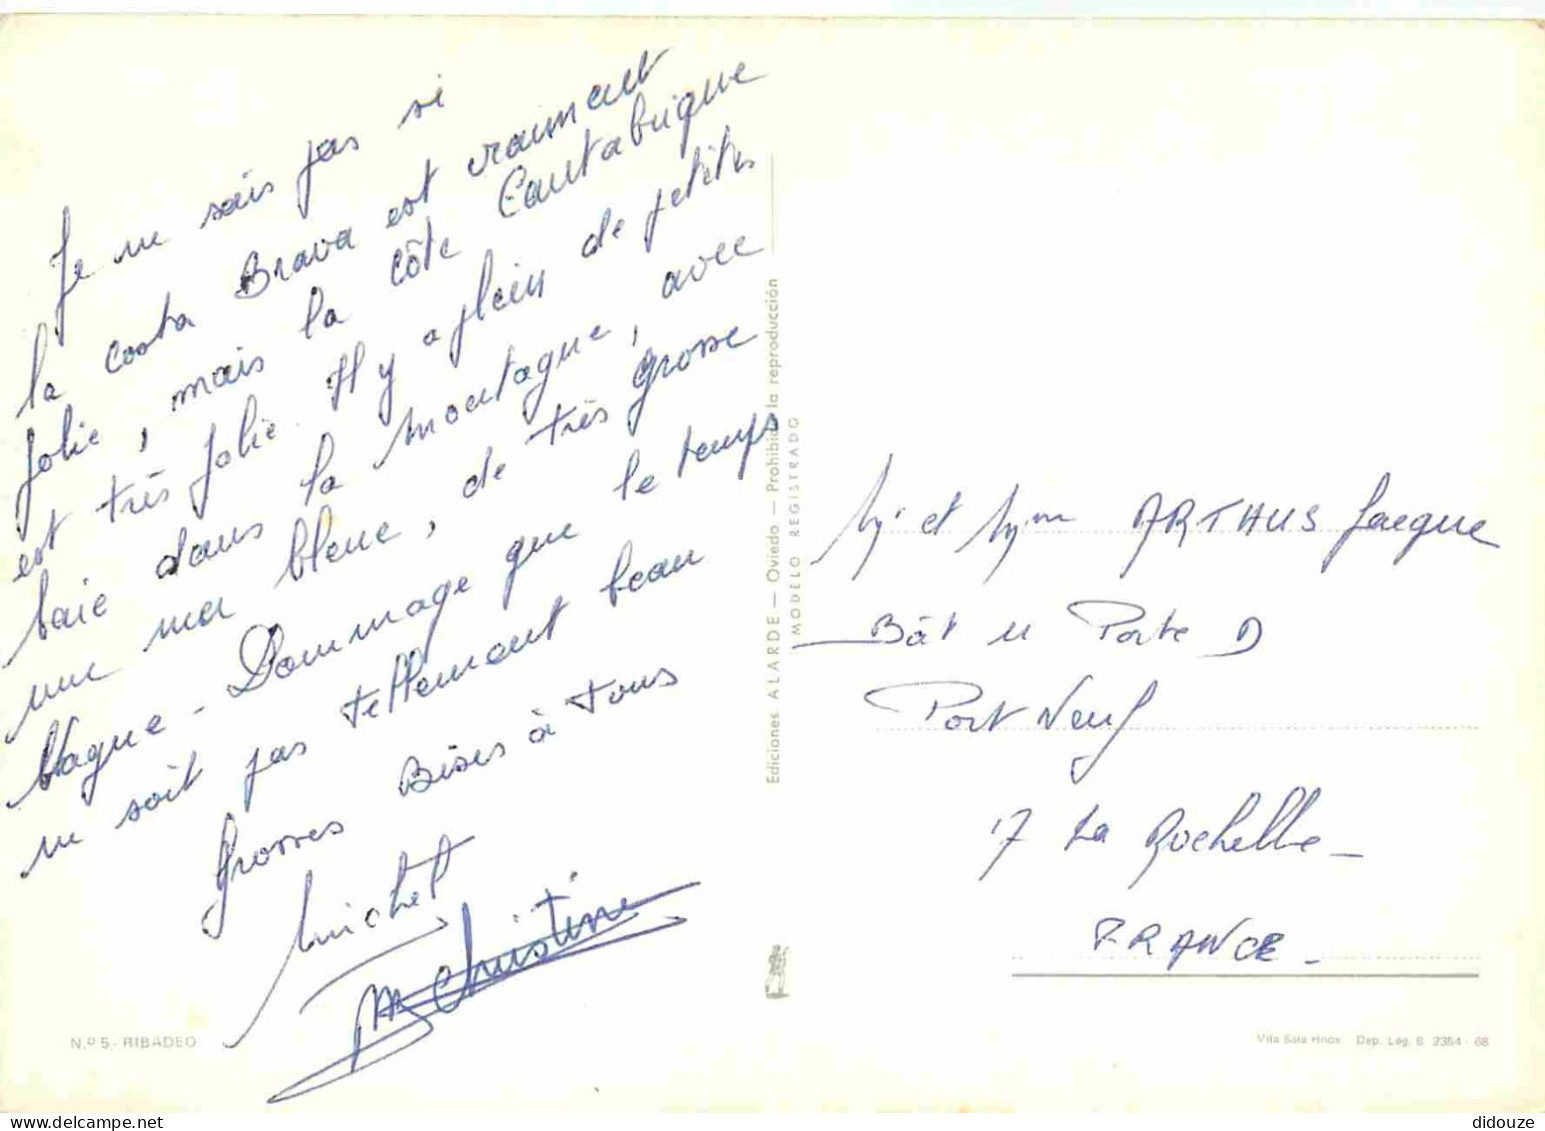 Je ne sais pas si
la costa Brava est vraiment
jolie, mais la côte Cantabrique
est très jolie. Il y a plein de petites
baie dans la montagne, avec
une mer bleue, de très grosse
Vague - Dommage que le temps
ne soit pas tellement beau
Grosses Bises à tous
Michel
M Christine
Ediciones ALARDE — Oviedo — Prohibida la reproducción
MODELO REGISTRADO
Mr et Mme ARTHUS Jacque
Bât 11 Porte D
Port Neuf
17 La Rochelle -
FRANCE -
N.º 5.- RIBADEO
Vila Sala Hnos. Dep. Leg. B. 2354 - 68
didouze